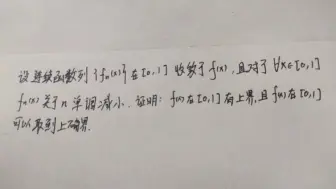 设连续函数列{fₙ(x)}在[0,1]收敛于f(x),且对于∀x∈[0,1]
fₙ(x)关于n单调减小.证明:f(x)在[0,1]有上界,且f(x)在[0,1]
可以取到上确界.